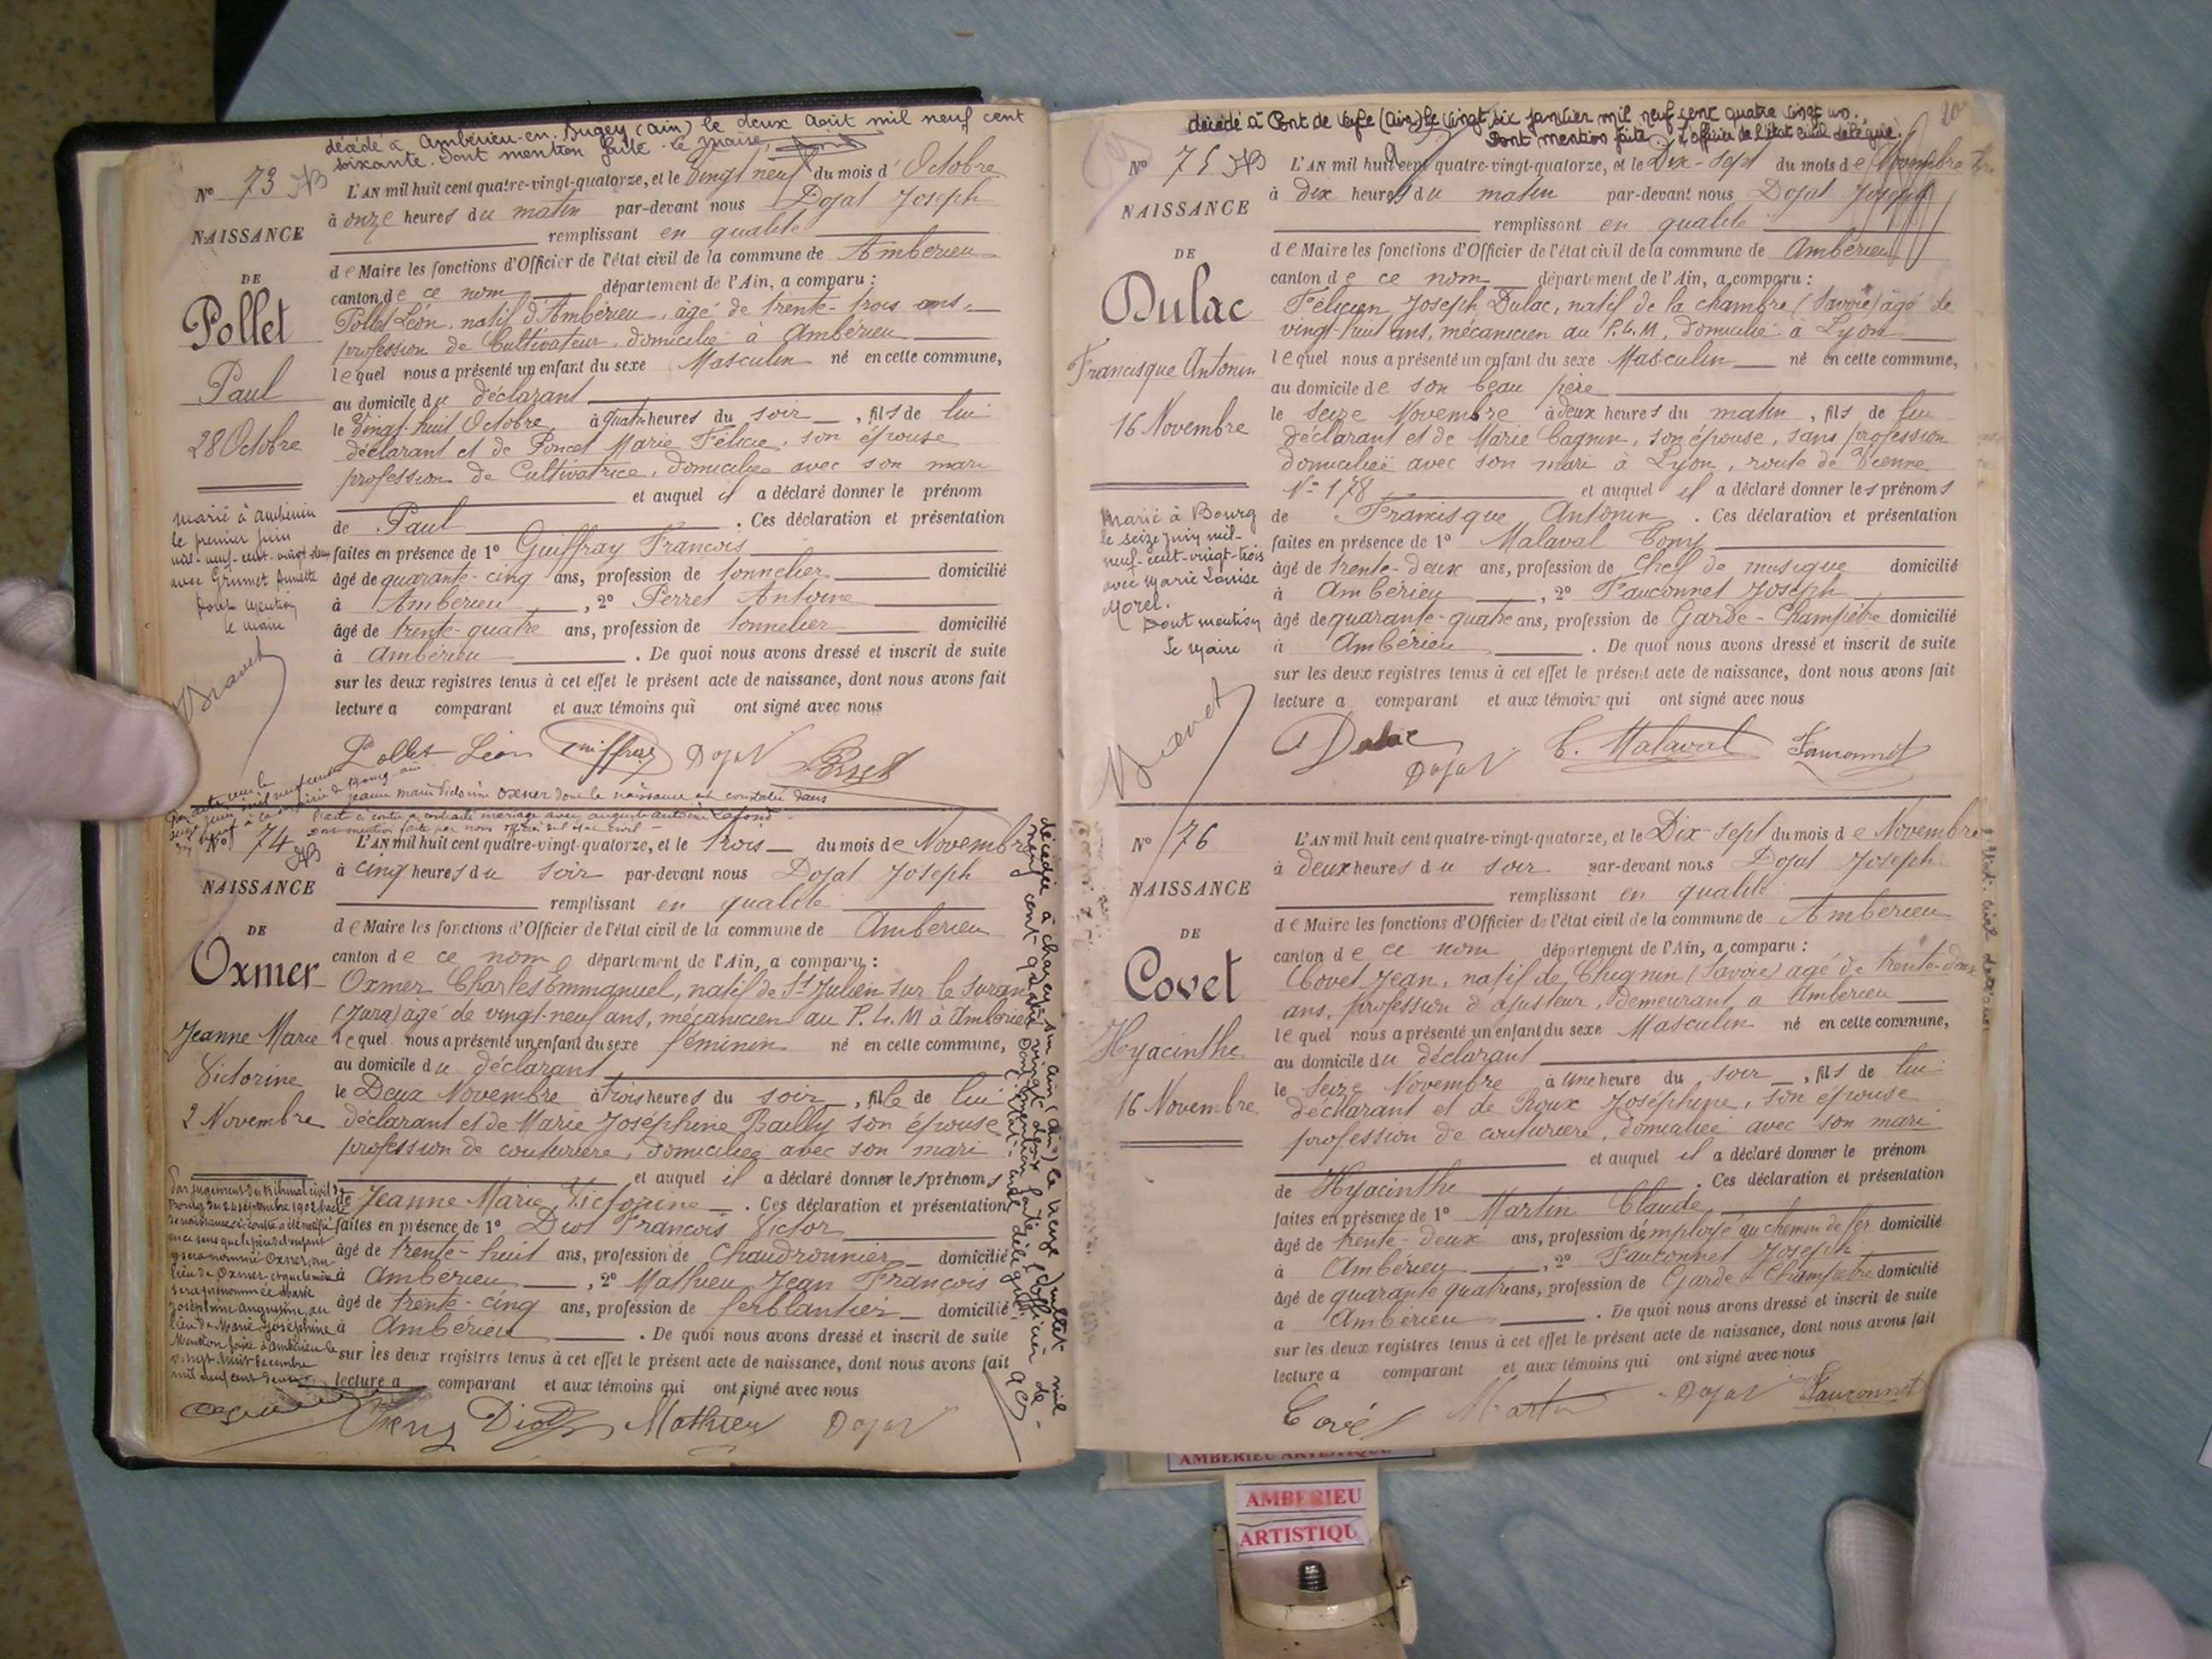 décédé à Ambérieu-en-Bugey (Ain) le deux Août mil neuf cent
soixante. Dont mention faite. Le Maire,
N° 73
NAISSANCE
DE
Pollet
Paul
28 Octobre
L'AN mil huit cent quatre-vingt-quatorze, et le Vingt neuf du mois d'Octobre
à onze heures du matin par-devant nous Dojat Joseph
remplissant en qualité
de Maire les fonctions d'Officier de l'état civil de la commune de Ambérieu
canton de ce nom département de l'Ain, a comparu :
Pollet Léon, natif d'Ambérieu, âgé de trente-trois ans,
profession de Cultivateur, domicilié à Ambérieu
lequel nous a présenté un enfant du sexe Masculin né en cette commune,
au domicile du déclarant
le Vingt-huit Octobre à quatre heures du soir, fils de lui
déclarant et de Poncet Marie Félicie, son épouse
profession de Cultivatrice, domiciliée avec son mari
et auquel il a déclaré donner le prénom
de Paul. Ces déclaration et présentation
faites en présence de 1° Guiffray François
âgé de quarante-cinq ans, profession de tonnelier domicilié
à Ambérieu, 2° Perret Antoine
âgé de trente-quatre ans, profession de tonnelier domicilié
à Ambérieu. De quoi nous avons dressé et inscrit de suite
sur les deux registres tenus à cet effet le présent acte de naissance, dont nous avons fait
lecture a comparant et aux témoins qui ont signé avec nous
marié à Ambérieu
le premier juin
mil-neuf-cent-vingt-deux
avec Grumet Annette
Dont mention
le maire
Pollet Léon Guiffray Dojat Perret
Jeanne Marie Victorine Oxner dont la naissance est constatée dans
l'acte ci-contre a contracté mariage avec auguste antoine Lafond.
Dont mention faite par nous officier de l'état civil
N° 74
NAISSANCE
DE
Oxmer
Jeanne Marie
Victorine
2 Novembre
L'AN mil huit cent quatre-vingt-quatorze, et le trois du mois de Novembre
à cinq heures du soir par-devant nous Dojat Joseph
remplissant en qualité
de Maire les fonctions d'Officier de l'état civil de la commune de Ambérieu
canton de ce nom, département de l'Ain, a comparu :
Oxmer Charles Emmanuel, natif de St Julien sur le Suran
(Jura) âgé de vingt-neuf ans, mécanicien au P.L.M à Ambérieu
lequel nous a présenté un enfant du sexe féminin né en cette commune,
au domicile du déclarant
le Deux Novembre à trois heures du soir, fille de lui
déclarant et de Marie Joséphine Bailly son épouse
profession de couturière, domiciliée avec son mari
et auquel il a déclaré donner les prénoms
de Jeanne Marie Victorine. Ces déclaration et présentation
faites en présence de 1° Diot François Victor
âgé de trente-huit ans, profession de Chaudronnier domicilié
à Ambérieu, 2° Mathieu Jean François
âgé de trente-cinq ans, profession de ferblantier domicilié
à Ambérieu. De quoi nous avons dressé et inscrit de suite
sur les deux registres tenus à cet effet le présent acte de naissance, dont nous avons fait
lecture a comparant et aux témoins qui ont signé avec nous
Par jugement du tribunal civil de
Bourg du 24 septembre 1902 l'acte
de naissance ci-contre a été rectifié
en ce sens que le père et l'enfant
y sera nommé Oxner, au
lieu de Oxmer, et que la mère
sera prénommée Marie
Joséphine Augustine, au
lieu de Marie Joséphine
Mention faite à Ambérieu le
vingt-huit décembre
mil neuf cent deux
Diot Mathieu Dojat
décédée à Charix (Ain) le treize juillet mil
neuf cent quatre vingt deux
décédé à Pont de Veyle (Ain) le vingt six janvier mil neuf cent quatre vingt un.
Dont mention faite. L'officier de l'état civil délégué.
N° 75
NAISSANCE
DE
Dulac
Francisque Antonin
16 Novembre
L'AN mil huit cent quatre-vingt-quatorze, et le Dix-Sept du mois de Novembre
à dix heures du matin par-devant nous Dojat Joseph
remplissant en qualité
de Maire les fonctions d'Officier de l'état civil de la commune de Ambérieu
canton de ce nom département de l'Ain, a comparu :
Félicien Joseph Dulac, natif de la chambre (Savoie) âgé de
vingt-huit ans, mécanicien au P.L.M, domicilié à Lyon
lequel nous a présenté un enfant du sexe Masculin né en cette commune,
au domicile de son beau père
le seize Novembre à deux heures du matin, fils de lui
déclarant et de Marie Cagnin, son épouse, sans profession
domiciliée avec son mari à Lyon, route de Vienne
N° 178 et auquel il a déclaré donner les prénoms
de Francisque Antonin. Ces déclaration et présentation
faites en présence de 1° Malaval Tony
âgé de trente-deux ans, profession de Chef de musique domicilié
à Ambérieu, 2° Fauconnet Joseph
âgé de quarante-quatre ans, profession de Garde-Champêtre domicilié
à Ambérieu. De quoi nous avons dressé et inscrit de suite
sur les deux registres tenus à cet effet le présent acte de naissance, dont nous avons fait
lecture a comparant et aux témoins qui ont signé avec nous
Marié à Bourg
le seize juin mil-
neuf-cent-vingt-trois
avec Marie Louise
Morel.
Dont mention
Le Maire
Dulac Dojat T. Malaval Fauconnet
N° 76
NAISSANCE
DE
Covet
Hyacinthe
16 Novembre
L'AN mil huit cent quatre-vingt-quatorze, et le Dix-Sept du mois de Novembre
à deux heures du soir par-devant nous Dojat Joseph
remplissant en qualité
de Maire les fonctions d'Officier de l'état civil de la commune de Ambérieu
canton de ce nom département de l'Ain, a comparu :
Covet Jean, natif de Chignin (Savoie) âgé de trente-deux
ans, profession d'ajusteur, demeurant à Ambérieu
lequel nous a présenté un enfant du sexe Masculin né en cette commune,
au domicile du déclarant
le Seize Novembre à une heure du soir, fils de lui
déclarant et de Roux Joséphine, son épouse
profession de couturière, domiciliée avec son mari
et auquel il a déclaré donner le prénom
de Hyacinthe. Ces déclaration et présentation
faites en présence de 1° Martin Claude
âgé de trente-deux ans, profession d'employé au chemin de fer domicilié
à Ambérieu, 2° Fauconnet Joseph
âgé de quarante quatre ans, profession de Garde-Champêtre domicilié
à Ambérieu. De quoi nous avons dressé et inscrit de suite
sur les deux registres tenus à cet effet le présent acte de naissance, dont nous avons fait
lecture a comparant et aux témoins qui ont signé avec nous
Covet Martin Dojat Fauconnet
AMBERIEU ARTISTIQUE
AMBERIEU
ARTISTIQU